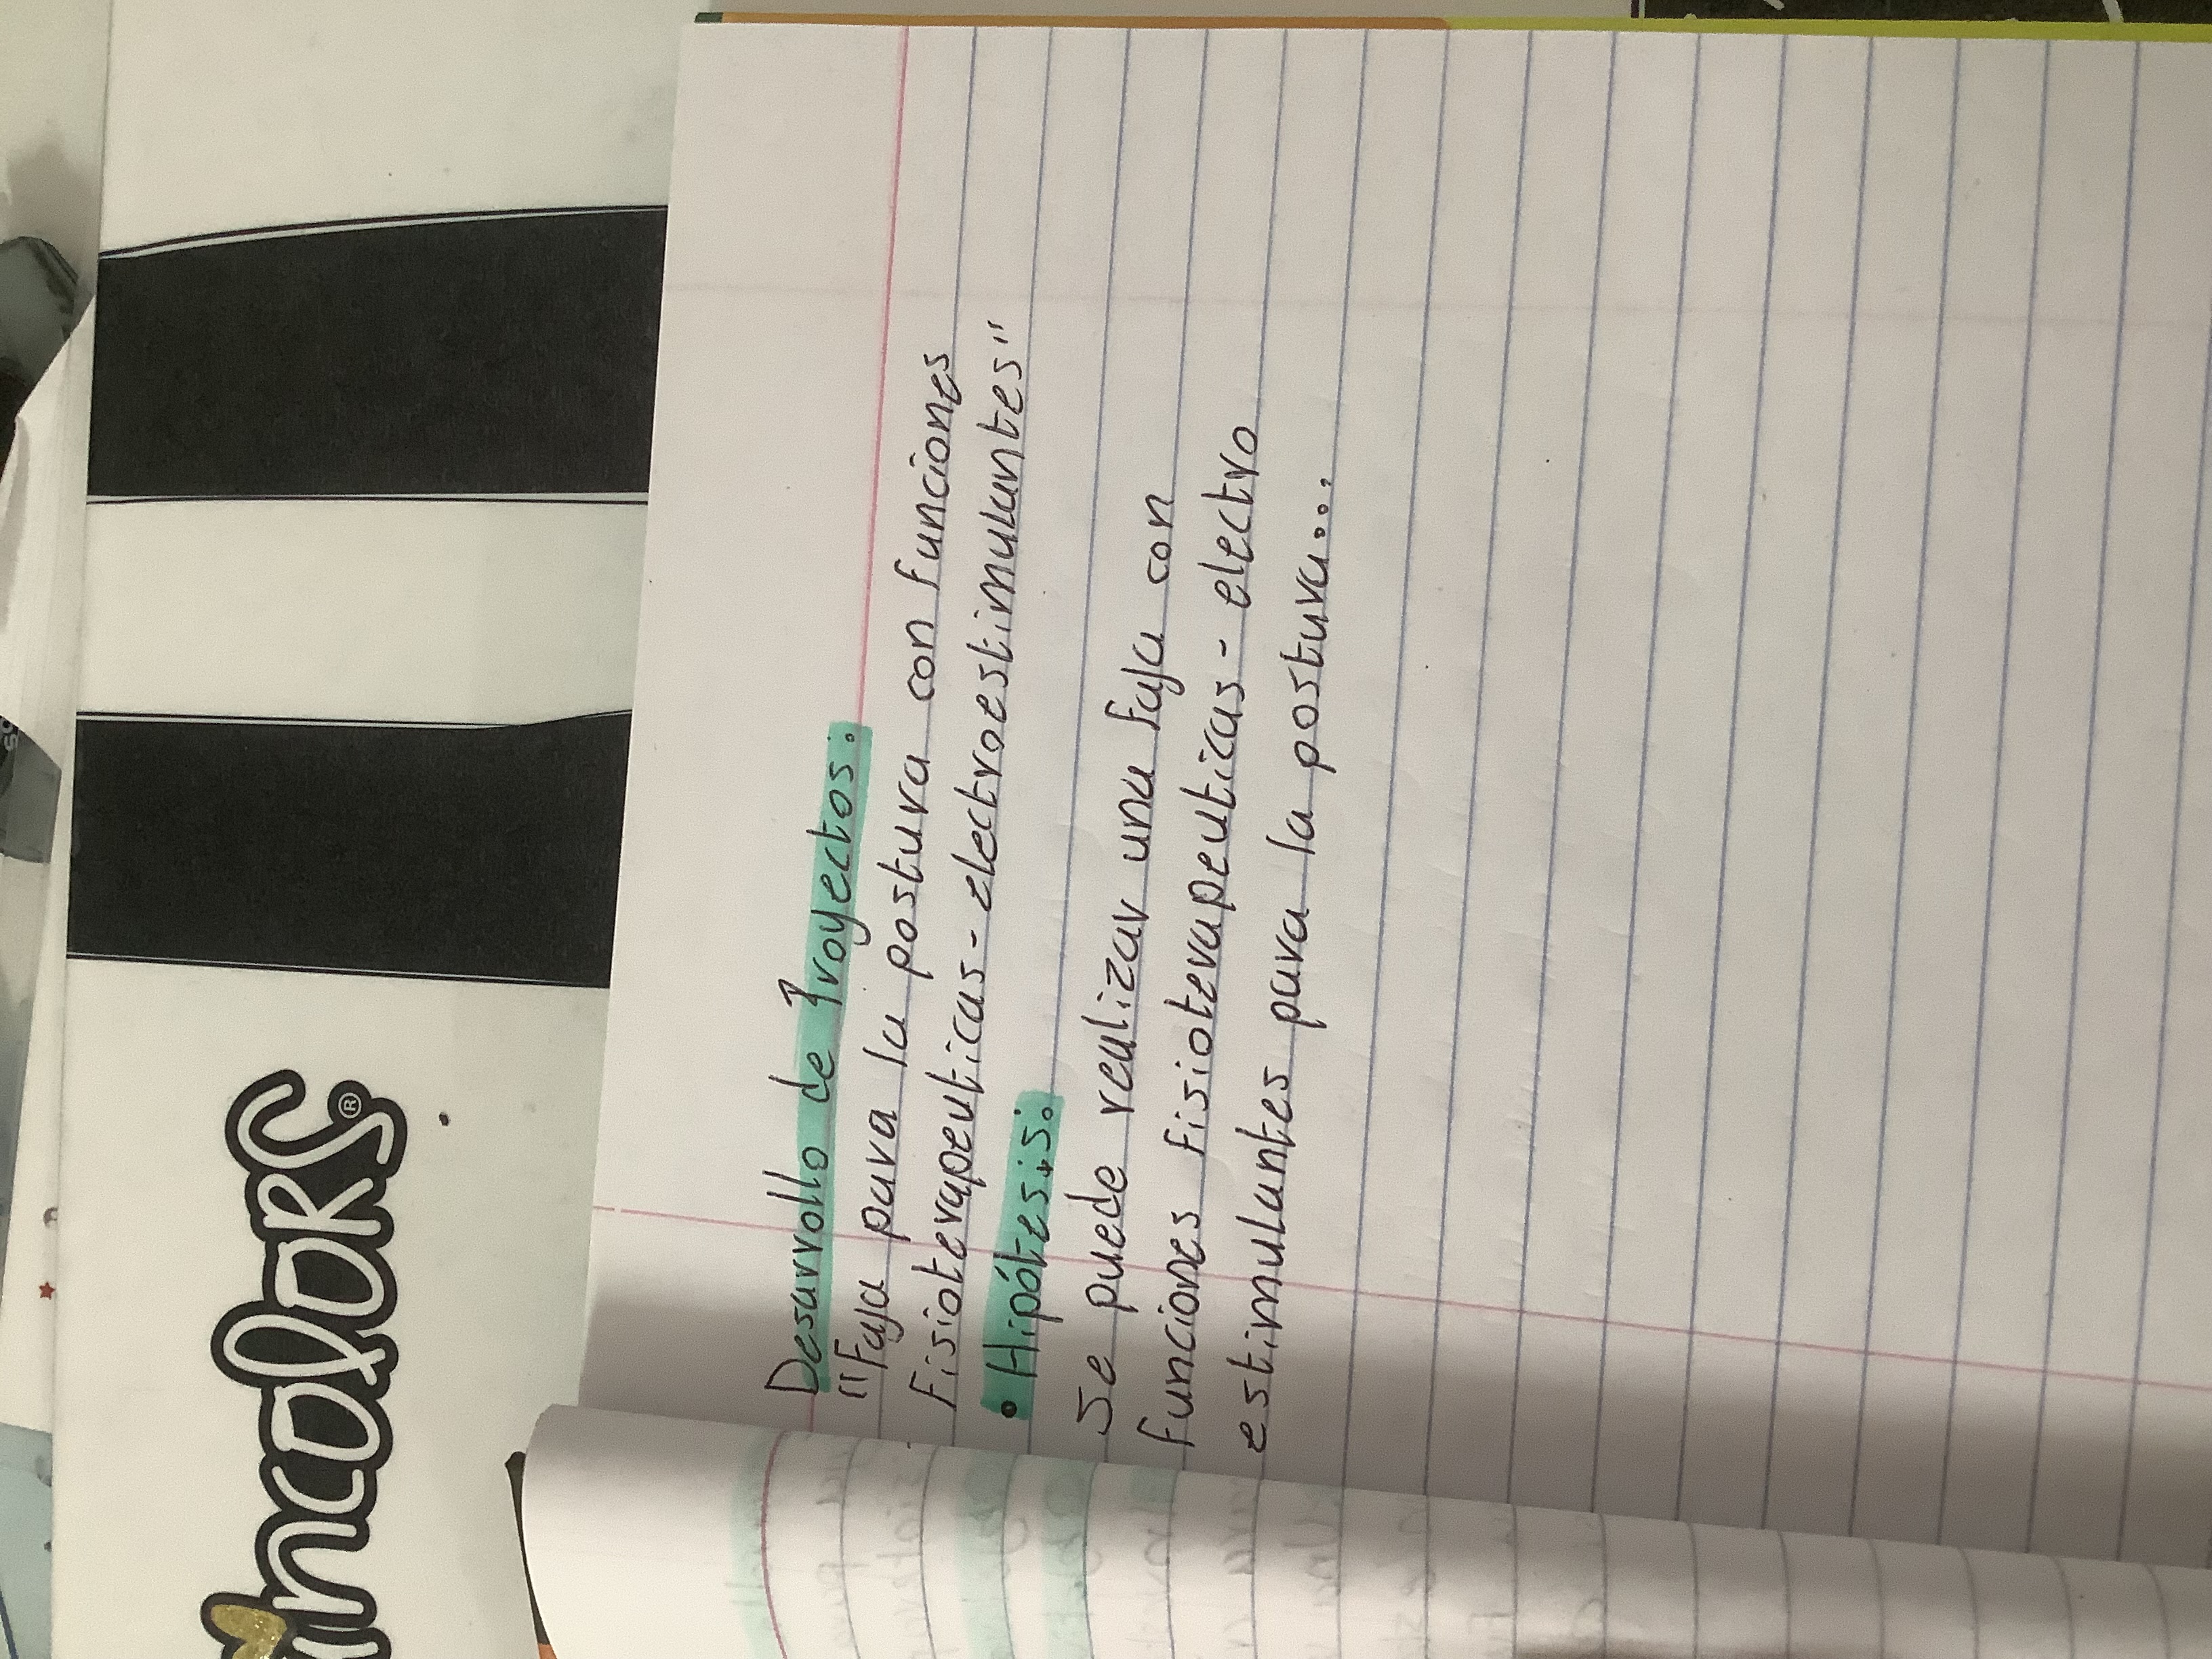 Desarrollo de Proyectos.
"Faja para la postura con funciones
fisioterapeuticas - electroestimulantes"
• Hipótesis.
Se puede realizar una faja con
funciones fisioterapeuticas - electro
estimulantes para la postura...
incolors®